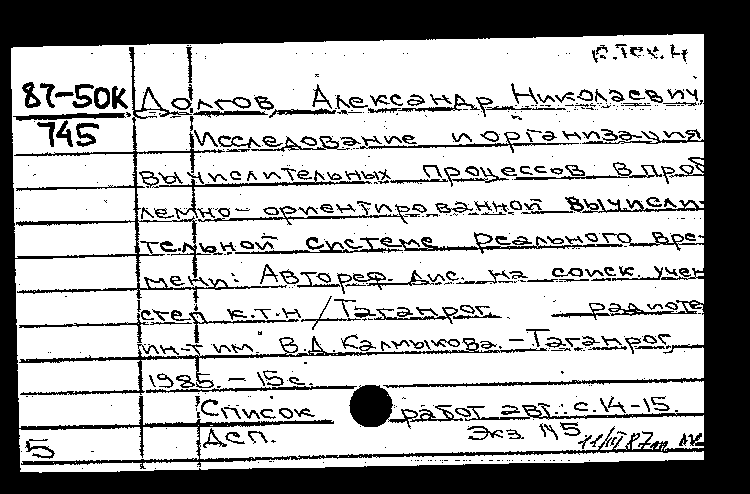 р.Тех.4
87-50К Долгов, Александр Николаевич.
745
Исследование и организация
вычислительных процессов в проб
лемно-ориентированной вычисли-
тельной системе реального вре-
мени: Автореф. дис. на соиск. учен
степ к.т.н /Таганрог. радиоте
ин-т им. В.Д. Калмыкова. – Таганрог,
1985. – 15 с.
Список работ авт.: с. 14-15.
Дсп. Экз №45
5